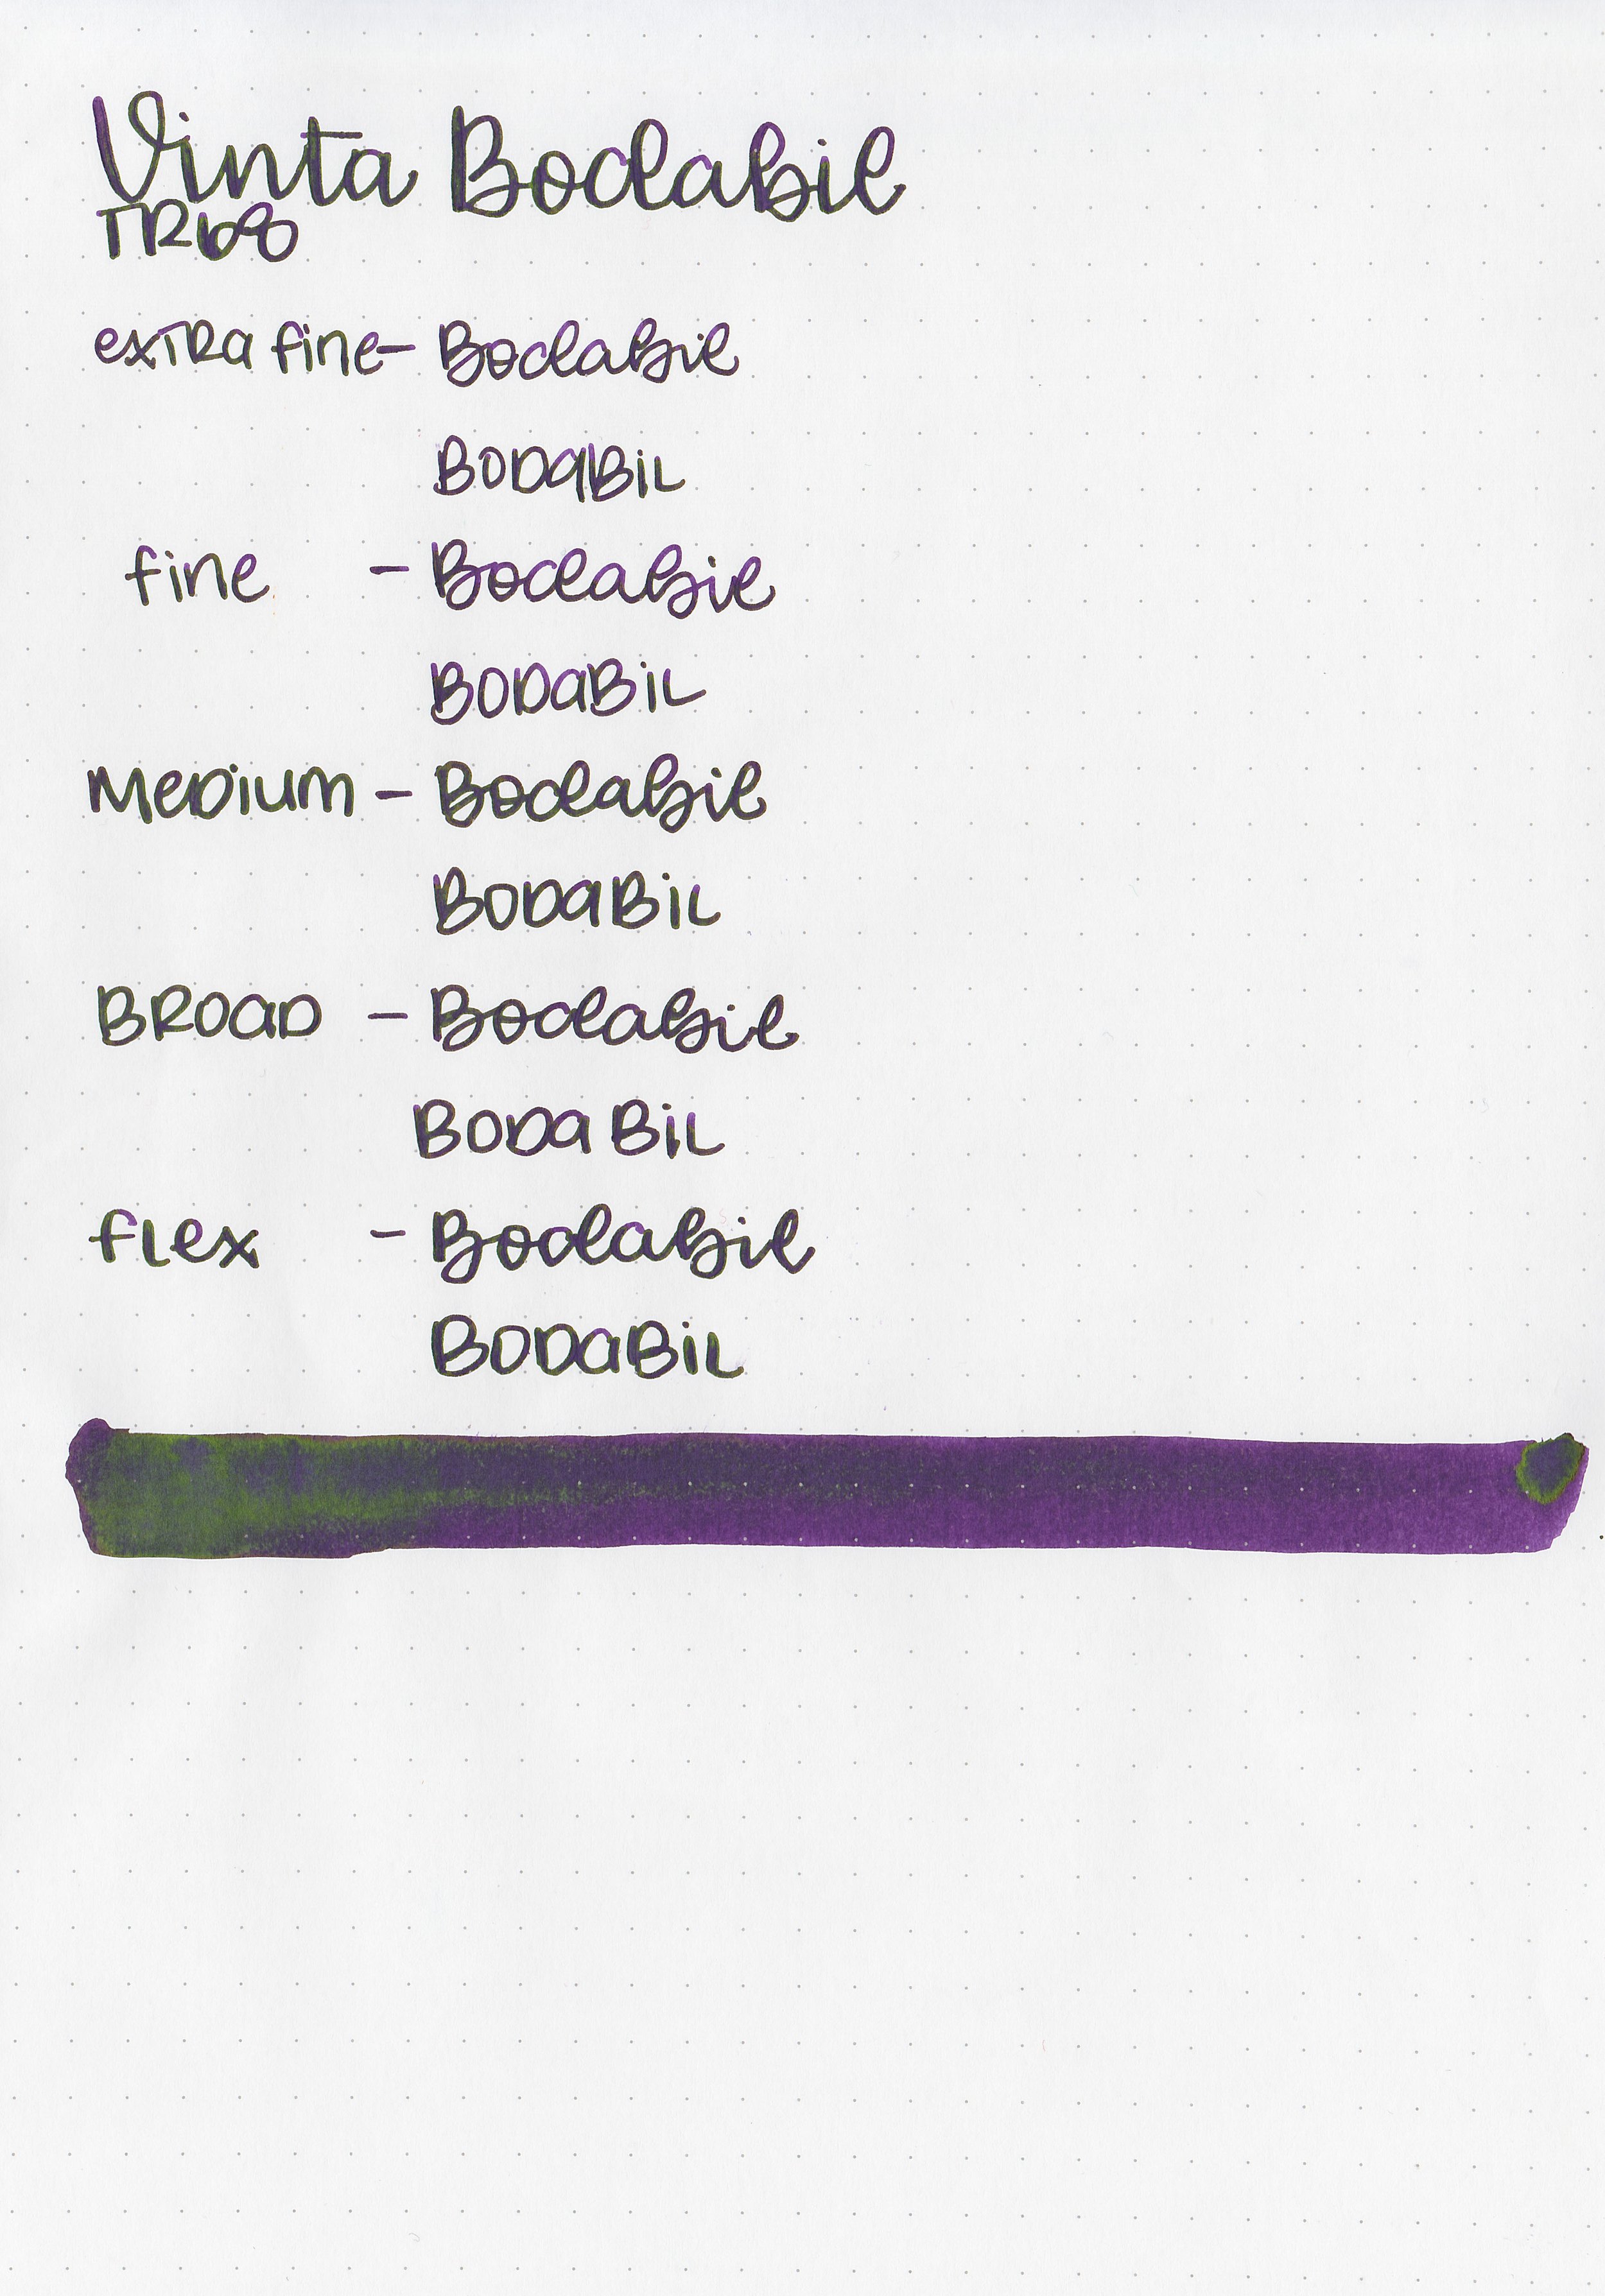 Vinta Bodabil
TR68
extra fine - Bodabil
BODABIL
fine - Bodabil
BODABIL
Medium - Bodabil
BODABIL
BROAD - Bodabil
BODABIL
flex - Bodabil
BODABIL